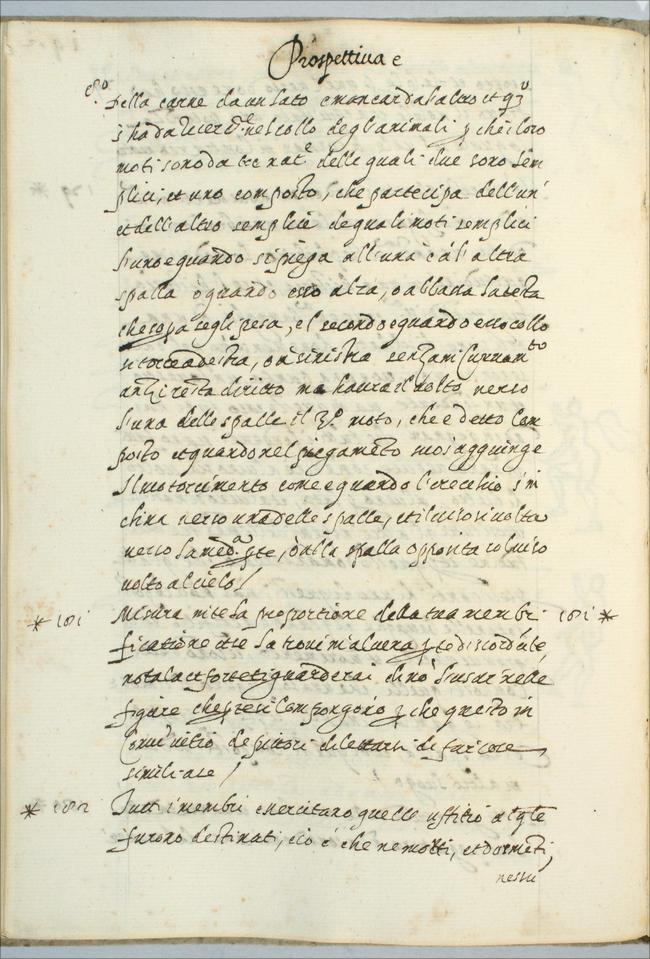 Prospettiua e
180
della carne da un lato e mancar dal altro et q.to
s'ha da uerd.e nel collo degl'animali che i loro
moti sono da tre nat.e delle quali due sono sem
plici, et uno composto, che partecipa dell'un'
et dell'altro semplice de quali moti semplici
l'uno e quando si piega all'una è ál'altra
spalla ò quando esso alza, o abbassa la testa
che sopra segli posa, e l secondo e quando esso collo
si torce a destra, o à sinistra senza incuruam.to
anzi resta diritto ma haurà il uolto uerso
l'una delle spalle il 3.o moto, che e detto Com
posto et quando nel piegameto suo si aggiunge
il suo torcimento come e quando l'orecchio s'in
china uerso una delle spalle, et il uiso si uolta
uerso la med.a pte, ò alla spalla opposita col uiso
uolto al cielo /
* 181 Misura in te la proportione della tua membri 181 *
ficatione et se la troui in alcuna pte discordáte,
notala et forte ti guarderai di nó l'usar nelle
figure che p te si Compongono p che questo in
Comu' uitio de pittori di lettarsi di far cose
simili a se /
* 182 Tutt i membri esercitano quello uffitio al qle
furono destinati, ciò é che ne morti, et dormeti,
nessu